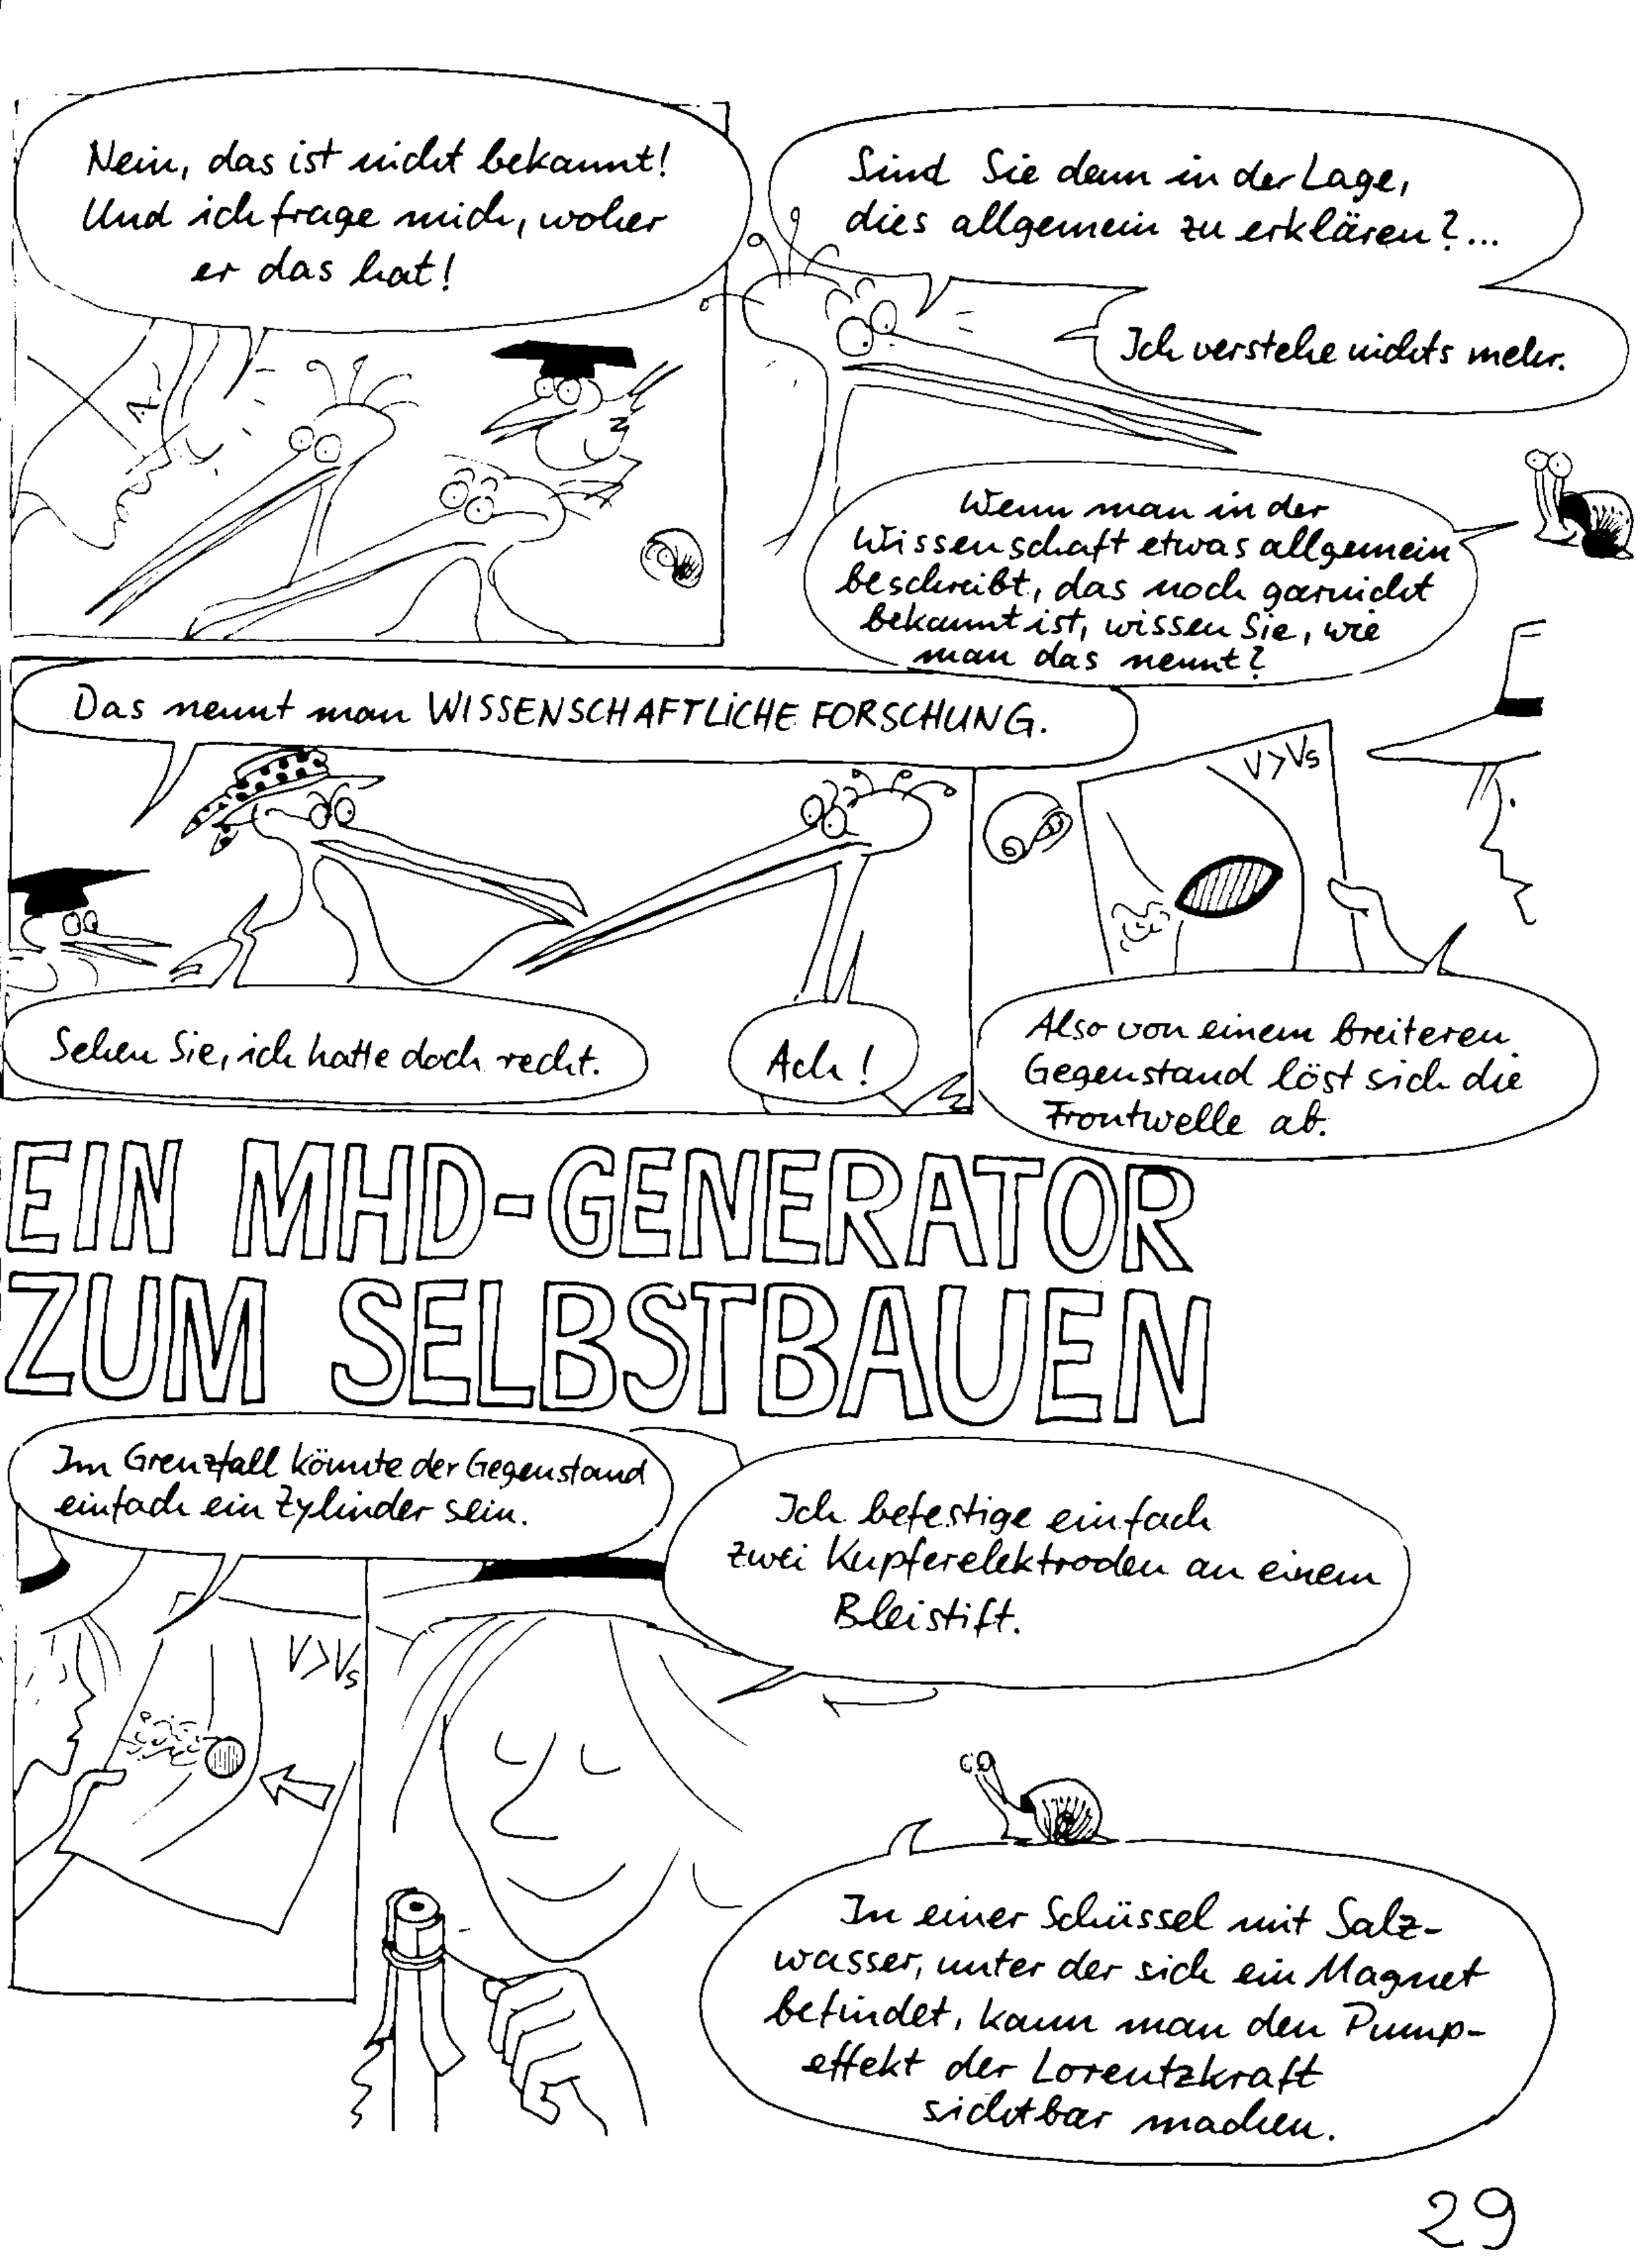 Nein, das ist nicht bekannt!
Und ich frage mich, woher
er das hat!
Sind Sie denn in der Lage,
dies allgemein zu erklären?...
Ich verstehe nichts mehr.
Wenn man in der
Wissenschaft etwas allgemein
beschreibt, das noch garnicht
bekannt ist, wissen Sie, wie
man das nennt?
Das nennt man WISSENSCHAFTLICHE FORSCHUNG.
V>Vs
Sehen Sie, ich hatte doch recht.
Ach!
Also von einem breiteren
Gegenstand löst sich die
Frontwelle ab.
EIN MHD-GENERATOR
ZUM SELBSTBAUEN
Im Grenzfall könnte der Gegenstand
einfach ein Zylinder sein.
V>Vs
Ich befestige einfach
zwei Kupferelektroden an einem
Bleistift.
In einer Schüssel mit Salz-
wasser, unter der sich ein Magnet
befindet, kann man den Pump-
effekt der Lorentzkraft
sichtbar machen.
29